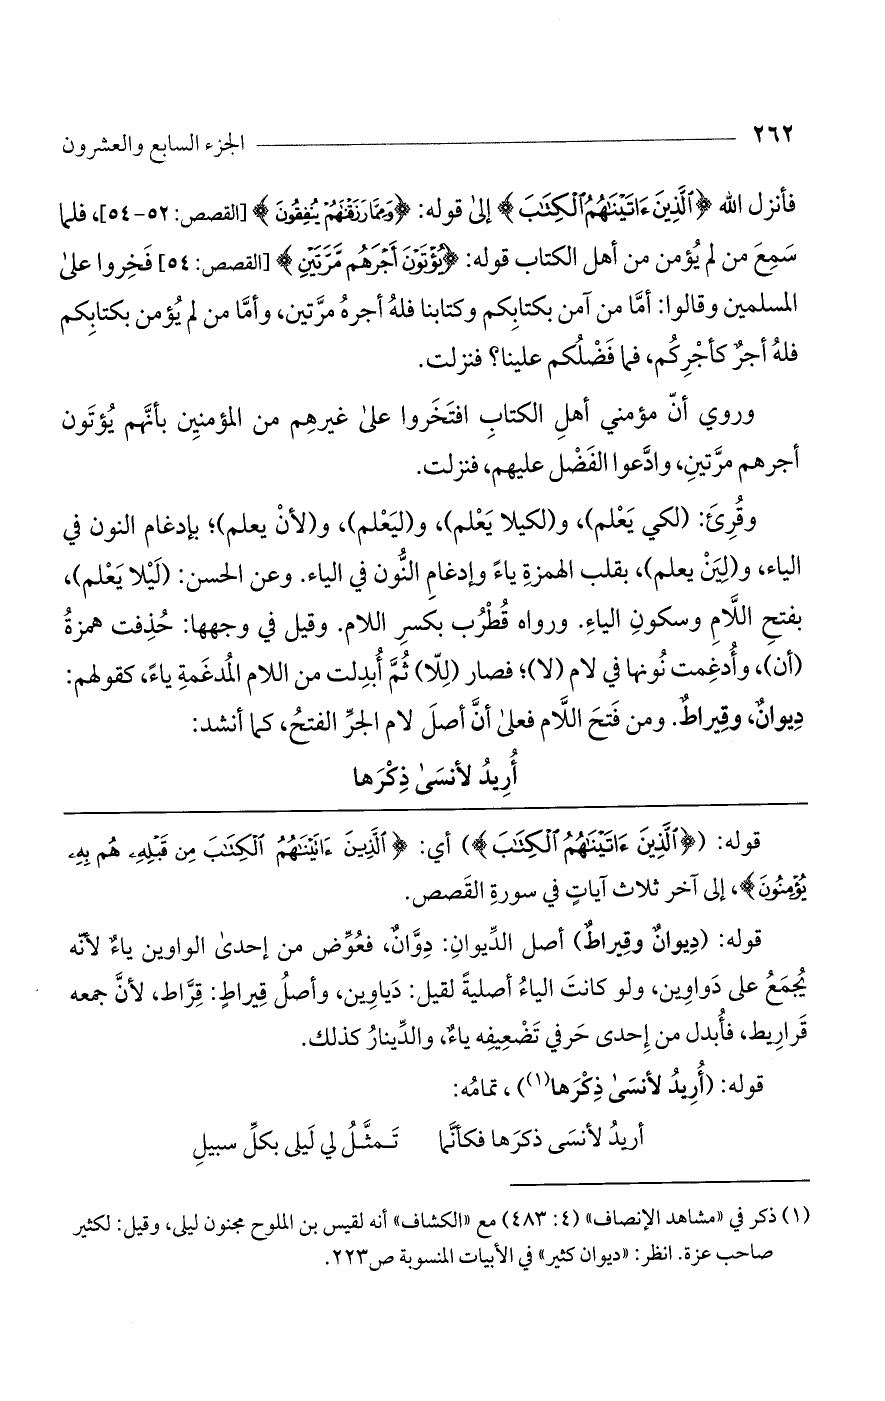 ٢٦٢ الجزء السابع والعشرون
فأنزل الله ﴿ٱلَّذِينَ ءَاتَيْنَٰهُمُ ٱلْكِتَٰبَ﴾ إلىٰ قوله: ﴿وَمِمَّا رَزَقْنَٰهُمْ يُنفِقُونَ﴾ [القصص: ٥٢-٥٤]، فلما
سَمِعَ من لم يُؤمن من أهل الكتاب قوله: ﴿يُؤْتَوْنَ أَجْرَهُم مَّرَّتَيْنِ﴾ [القصص: ٥٤] فَخِروا علىٰ
المسلمين وقالوا: أمَّا من آمن بكتابِكم وكتابنا فلهُ أجرهُ مرَّتين، وأمَّا من لم يُؤمن بكتابِكم
فلهُ أجرٌ كأجْرِكُم، فما فَضْلُكم علينا؟ فنزلت.
وروي أنّ مؤمني أهلِ الكتابِ افتَخَروا علىٰ غيرهِم من المؤمنِين بأنَّهم يُؤتَون
أجرهم مرَّتينِ، وادَّعوا الفَضْل عليهم، فنزلت.
وقُرِئَ: (لكي يَعْلم)، و(لكيلا يَعْلم)، و(ليَعْلم)، و(لأنْ يعلم)؛ بإدغام النون في
الياء، و(لِيَنْ يعلم)، بقلب الهمزةِ ياءً وإدغامِ النُّون في الياء. وعن الحسن: (لَيْلا يَعْلم)،
بفتحِ اللَّامِ وسكونِ الياءِ. ورواه قُطْرُب بكسرِ اللام. وقيل في وجهها: حُذِفت همزةُ
(أن)، وأُدغِمت نُونها في لام (لا)؛ فصار (لِلّا) ثُمَّ أُبدِلت من اللام المُدغَمةِ ياءً، كقولهم:
دِيوانٌ، وقِيراطٌ. ومن فَتَحَ اللَّام فعلىٰ أنَّ أصلَ لام الجرِّ الفتحُ، كما أنشد:
أُرِيدُ لأنسَىٰ ذِكْرَها
قوله: (﴿ٱلَّذِينَ ءَاتَيْنَٰهُمُ ٱلْكِتَٰبَ﴾) أي: ﴿ٱلَّذِينَ ءَاتَيْنَٰهُمُ ٱلْكِتَٰبَ مِن قَبْلِهِۦ هُم بِهِۦ
يُؤْمِنُونَ﴾، إلى آخر ثلاث آياتٍ في سورةِ القَصص.
قوله: (دِيوانٌ وقِيراطٌ) أصل الدِّيوانِ: دِوَّانٌ، فعُوِّض من إحدىٰ الواوين ياءٌ لأنّه
يُجمَعُ على دَواوِين، ولو كانتَ الياءُ أصليةً لقيل: دَياوِين، وأصلُ قِيراطٍ: قِرَّاط، لأنَّ جمعه
قَرارِيط، فأُبدل من إحدى حَرفي تَضْعِيفِه ياءٌ، والدِّينارُ كذلك.
قوله: (أُرِيدُ لأنسَىٰ ذِكْرَها(١))، تمامُه:
أريدُ لأنسَى ذكرَها فكأنَّما تَـمثَّـلُ لي لَيلى بكلِّ سبيلِ
(١) ذكر في «مشاهد الإنصاف» (٤: ٤٨٣) مع «الكشاف» أنه لقيس بن الملوح مجنون ليلى، وقيل: لكثير
صاحب عزة. انظر: «ديوان كثير» في الأبيات المنسوبة ص٢٢٣.